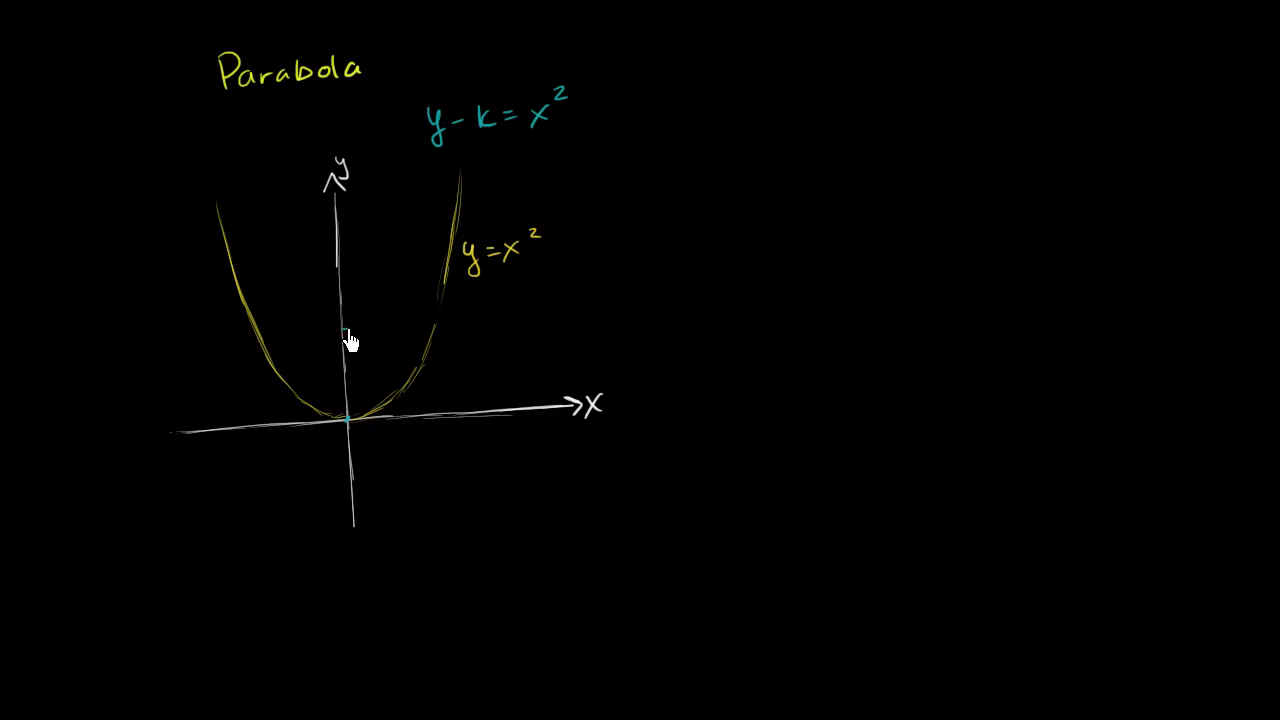 Parabola
y - k = x²
y
y = x²
x